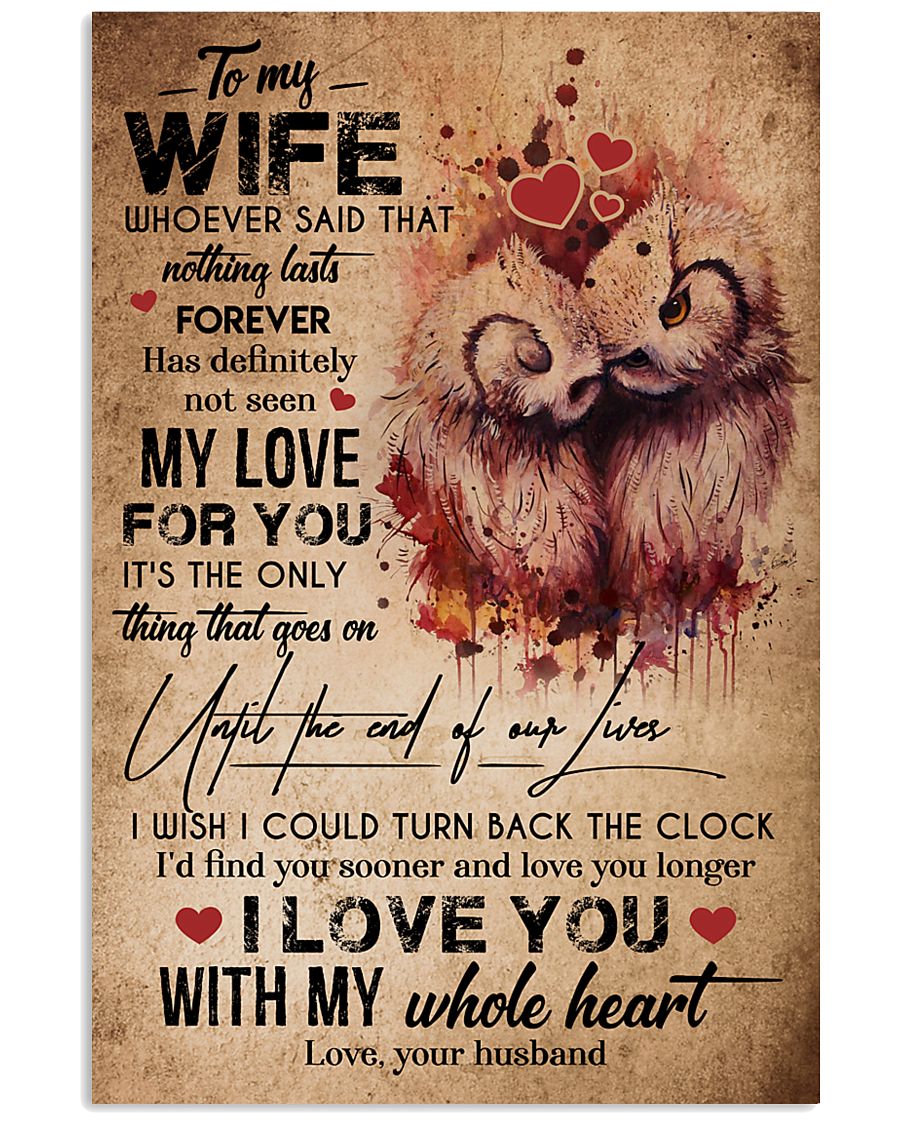 To my
WIFE
WHOEVER SAID THAT
nothing lasts
FOREVER
Has definitely
not seen
MY LOVE
FOR YOU
IT'S THE ONLY
thing that goes on
Until the end of our Lives
I WISH I COULD TURN BACK THE CLOCK
I'd find you sooner and love you longer
I LOVE YOU
WITH MY whole heart
Love, your husband